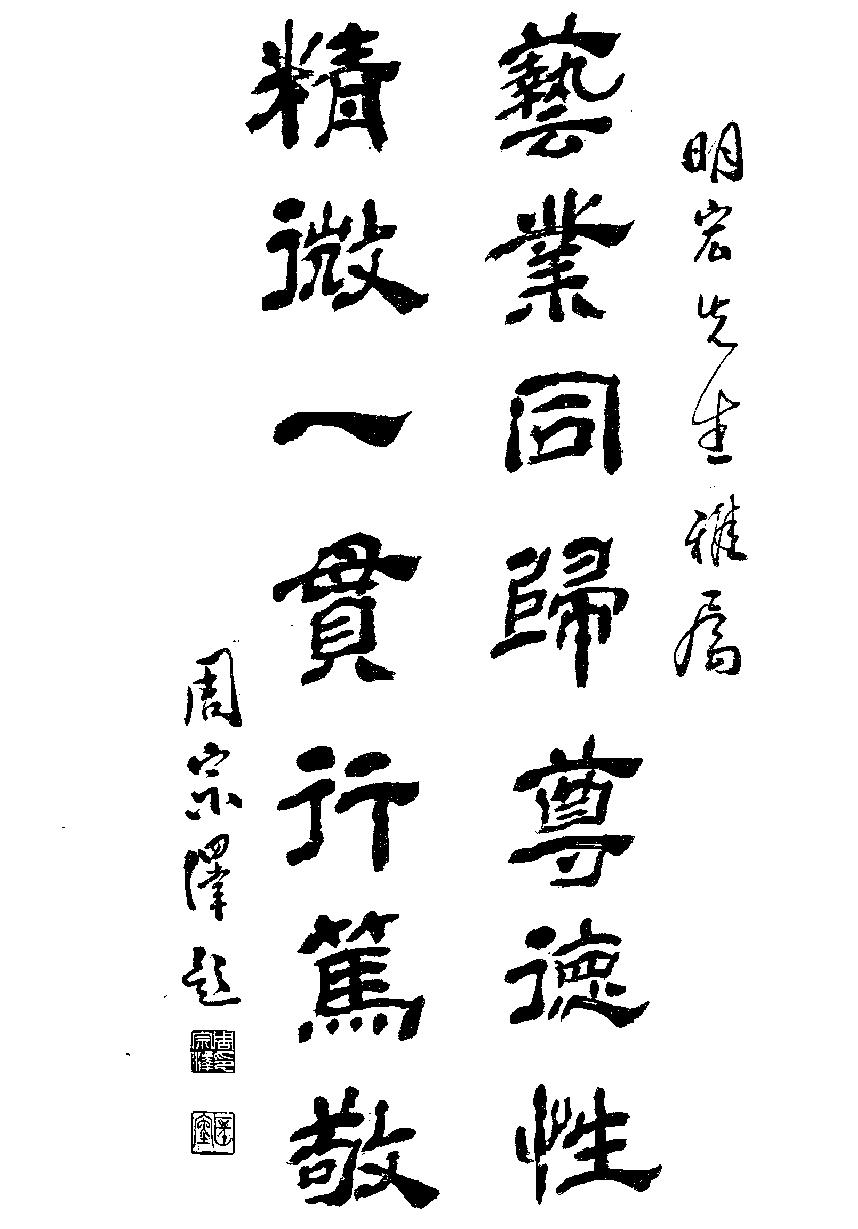 明宏先生雅屬
藝業同歸尊德性
精微一貫行篤敬
周宗澤題